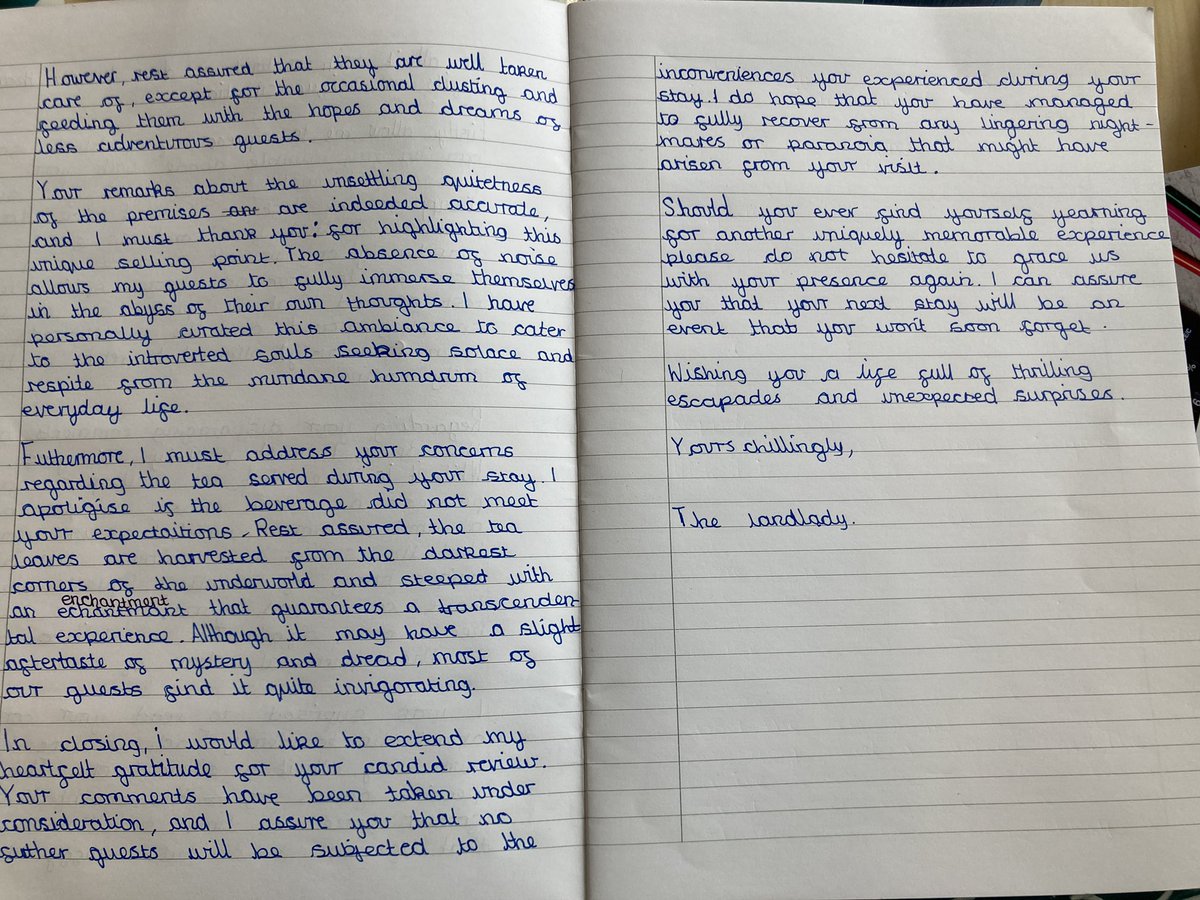 However, rest assured that they are well taken
care of, except for the occasional dusting and
feeding them with the hopes and dreams of
less adventurous guests.
Your remarks about the unsettling quitetness
of the premises are indeeded accurate,
and I must thank you: for highlighting this
unique selling point. The absence of noise
allows my guests to fully immerse themselves
in the abyss of their own thoughts. I have
personally curated this ambiance to cater
to the introverted souls seeking solace and
respite from the mundane humdrum of
everyday life.
Futhermore, I must address your concerns
regarding the tea served during your stay. I
apoligise if the beverage did not meet
your expectaitions. Rest assured, the tea
leaves are harvested from the darkest
corners of the underworld and steeped with
enchantment
an echantmant that guarantees a transcenden-
tal experience. Although it may have a slight
aftertaste of mystery and dread, most of
our guests find it quite invigorating.
In closing, i would like to extend my
heartfelt gratitude for your candid review.
Your comments have been taken under
consideration, and I assure you that no
futher guests will be subjected to the
inconveniences you experienced during your
stay. I do hope that you have managed
to fully recover from any lingering night-
mares or paranoia that might have
arisen from your visit.
Should you ever find yourself yearning
for another uniquely memorable experience
please do not hesitate to grace us
with your presence again. I can assure
you that your next stay will be an
event that you won't soon forget.
Wishing you a life full of thrilling
escapades and unexpected surprises.
Yours chillingly,
The landlady.